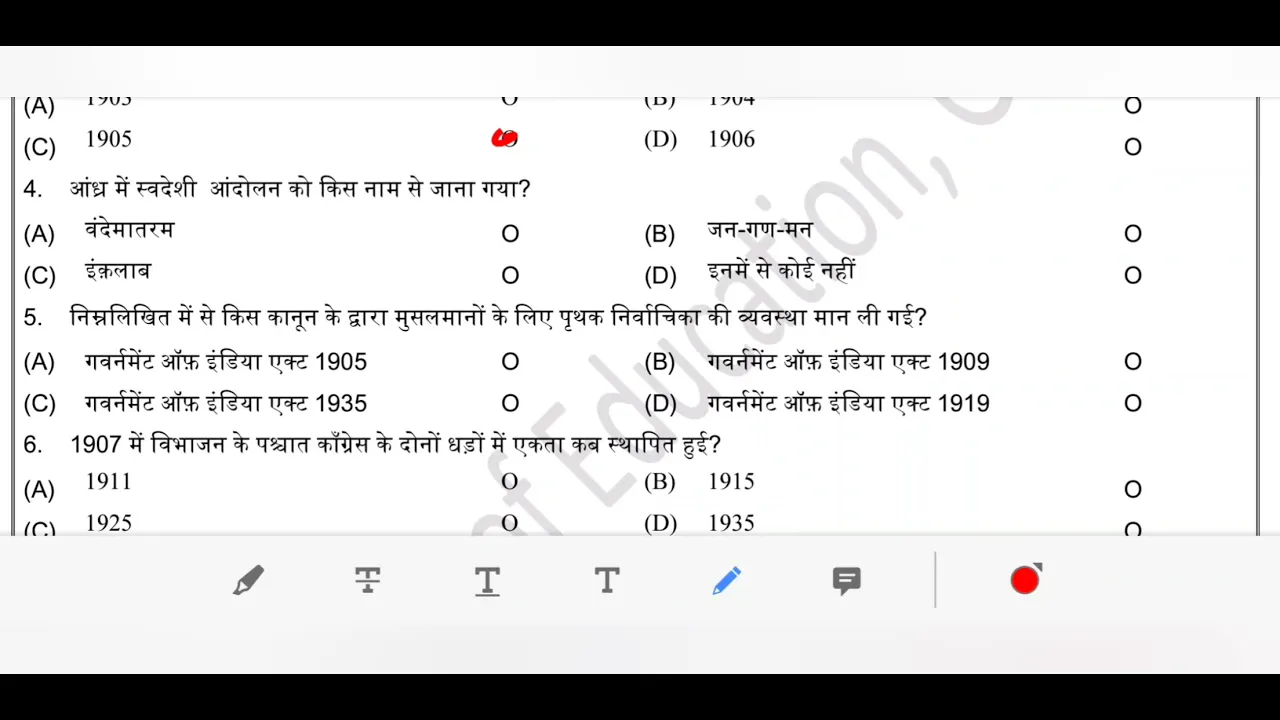 (A) 1903 O (B) 1904 O
(C) 1905 O (D) 1906 O
4. आंध्र में स्वदेशी आंदोलन को किस नाम से जाना गया?
(A) वंदेमातरम O (B) जन-गण-मन O
(C) इंक़लाब O (D) इनमें से कोई नहीं O
5. निम्नलिखित में से किस कानून के द्वारा मुसलमानों के लिए पृथक निर्वाचिका की व्यवस्था मान ली गई?
(A) गवर्नमेंट ऑफ़ इंडिया एक्ट 1905 O (B) गवर्नमेंट ऑफ़ इंडिया एक्ट 1909 O
(C) गवर्नमेंट ऑफ़ इंडिया एक्ट 1935 O (D) गवर्नमेंट ऑफ़ इंडिया एक्ट 1919 O
6. 1907 में विभाजन के पश्चात काँग्रेस के दोनों धड़ों में एकता कब स्थापित हुई?
(A) 1911 O (B) 1915 O
(C) 1925 O (D) 1935 O
of Education,